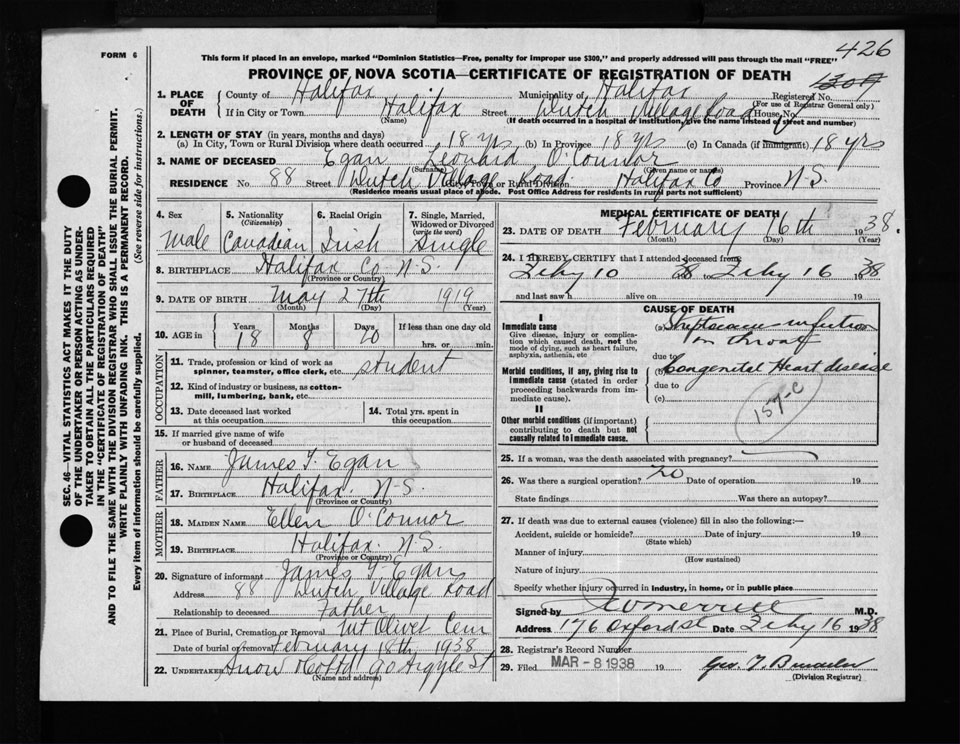 FORM 6
426
This form if placed in an envelope, marked "Dominion Statistics—Free, penalty for improper use $300," and properly addressed will pass through the mail "FREE"
PROVINCE OF NOVA SCOTIA—CERTIFICATE OF REGISTRATION OF DEATH
SEC. 46—VITAL STATISTICS ACT MAKES IT THE DUTY
OF THE UNDERTAKER OR PERSON ACTING AS UNDER-
TAKER TO OBTAIN ALL THE PARTICULARS REQUIRED
IN THE "CERTIFICATE OF REGISTRATION OF DEATH"
AND TO FILE THE SAME WITH THE DIVISION REGISTRAR WHO SHALL ISSUE THE BURIAL PERMIT.
WRITE PLAINLY WITH UNFADING INK. THIS IS A PERMANENT RECORD.
Every item of information should be carefully supplied. (See reverse side for instructions.)
1. PLACE OF DEATH County of Halifax Municipality of Halifax Registered No.
(For use of Registrar General only)
If in City or Town Halifax Street Dutch Village Road House No.
(Name) (If death occurred in a hospital or institution, give the name instead of street and number)
2. LENGTH OF STAY (in years, months and days)
(a) In City, Town or Rural Division where death occurred 18 yrs (b) In Province 18 yrs (c) In Canada (if immigrant) 18 yrs
3. NAME OF DECEASED Egan Leonard O'Connor
(Surname) (Given name or names)
RESIDENCE No. 88 Street Dutch Village Road City, Town or Rural Division Halifax Co Province N.S.
(Residence means usual place of abode. Post Office Address for residents in rural parts not sufficient)
4. Sex Male
5. Nationality (Citizenship) Canadian
6. Racial Origin Irish
7. Single, Married, Widowed or Divorced (write the word) Single
8. BIRTHPLACE Halifax Co N.S.
(Province or Country)
9. DATE OF BIRTH May 27th 1919
(Month) (Day) (Year)
10. AGE in Years 18 Months 8 Days 20 If less than one day old
hrs. or min.
OCCUPATION
11. Trade, profession or kind of work as spinner, teamster, office clerk, etc. student
12. Kind of industry or business, as cotton-mill, lumbering, bank, etc.
13. Date deceased last worked at this occupation
14. Total yrs. spent in this occupation
15. If married give name of wife or husband of deceased
FATHER
16. NAME James T. Egan
17. BIRTHPLACE Halifax. N.S.
(Province or Country)
MOTHER
18. MAIDEN NAME Ellen O'Connor
19. BIRTHPLACE Halifax. N.S.
(Province or Country)
20. Signature of informant James T. Egan
Address 88 Dutch Village Road
Relationship to deceased Father
21. Place of Burial, Cremation or Removal Mt Olivet Cem
Date of burial or removal February 18th, 1938
22. UNDERTAKER Snow & Co Ltd 90 Argyle St
(Name and address)
MEDICAL CERTIFICATE OF DEATH
23. DATE OF DEATH February 16th 1938.
(Month) (Day) (Year)
24. I HEREBY CERTIFY that I attended deceased from
Feby 10 38 to Feby 16 1938
and last saw h alive on 19
CAUSE OF DEATH
I
Immediate cause
Give disease, injury or complication which caused death, not the mode of dying, such as heart failure, asphyxia, asthenia, etc
(a) Streptococcus infection
in throat
due to
Morbid conditions, if any, giving rise to Immediate cause (stated in order proceeding backwards from immediate cause).
(b) Congenital Heart disease
due to
(c)
157-C
II
Other morbid conditions (if important) contributing to death but not causally related to immediate cause.
25. If a woman, was the death associated with pregnancy?
26. Was there a surgical operation? no Date of operation 19
State findings Was there an autopsy?
27. If death was due to external causes (violence) fill in also the following:—
Accident, suicide or homicide? Date of injury 19
(State which)
Manner of injury
(How sustained)
Nature of injury
Specify whether injury occurred in industry, in home, or in public place
Signed by M.D.
Address 176 Oxford St Date Feby 16 1938
28. Registrar's Record Number
29. Filed MAR - 8 1938 19
(Division Registrar)